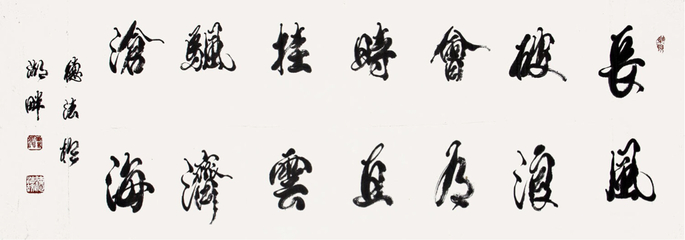 長風
破浪
會有
時直
挂雲
颿濟
滄海
德法
湖畔